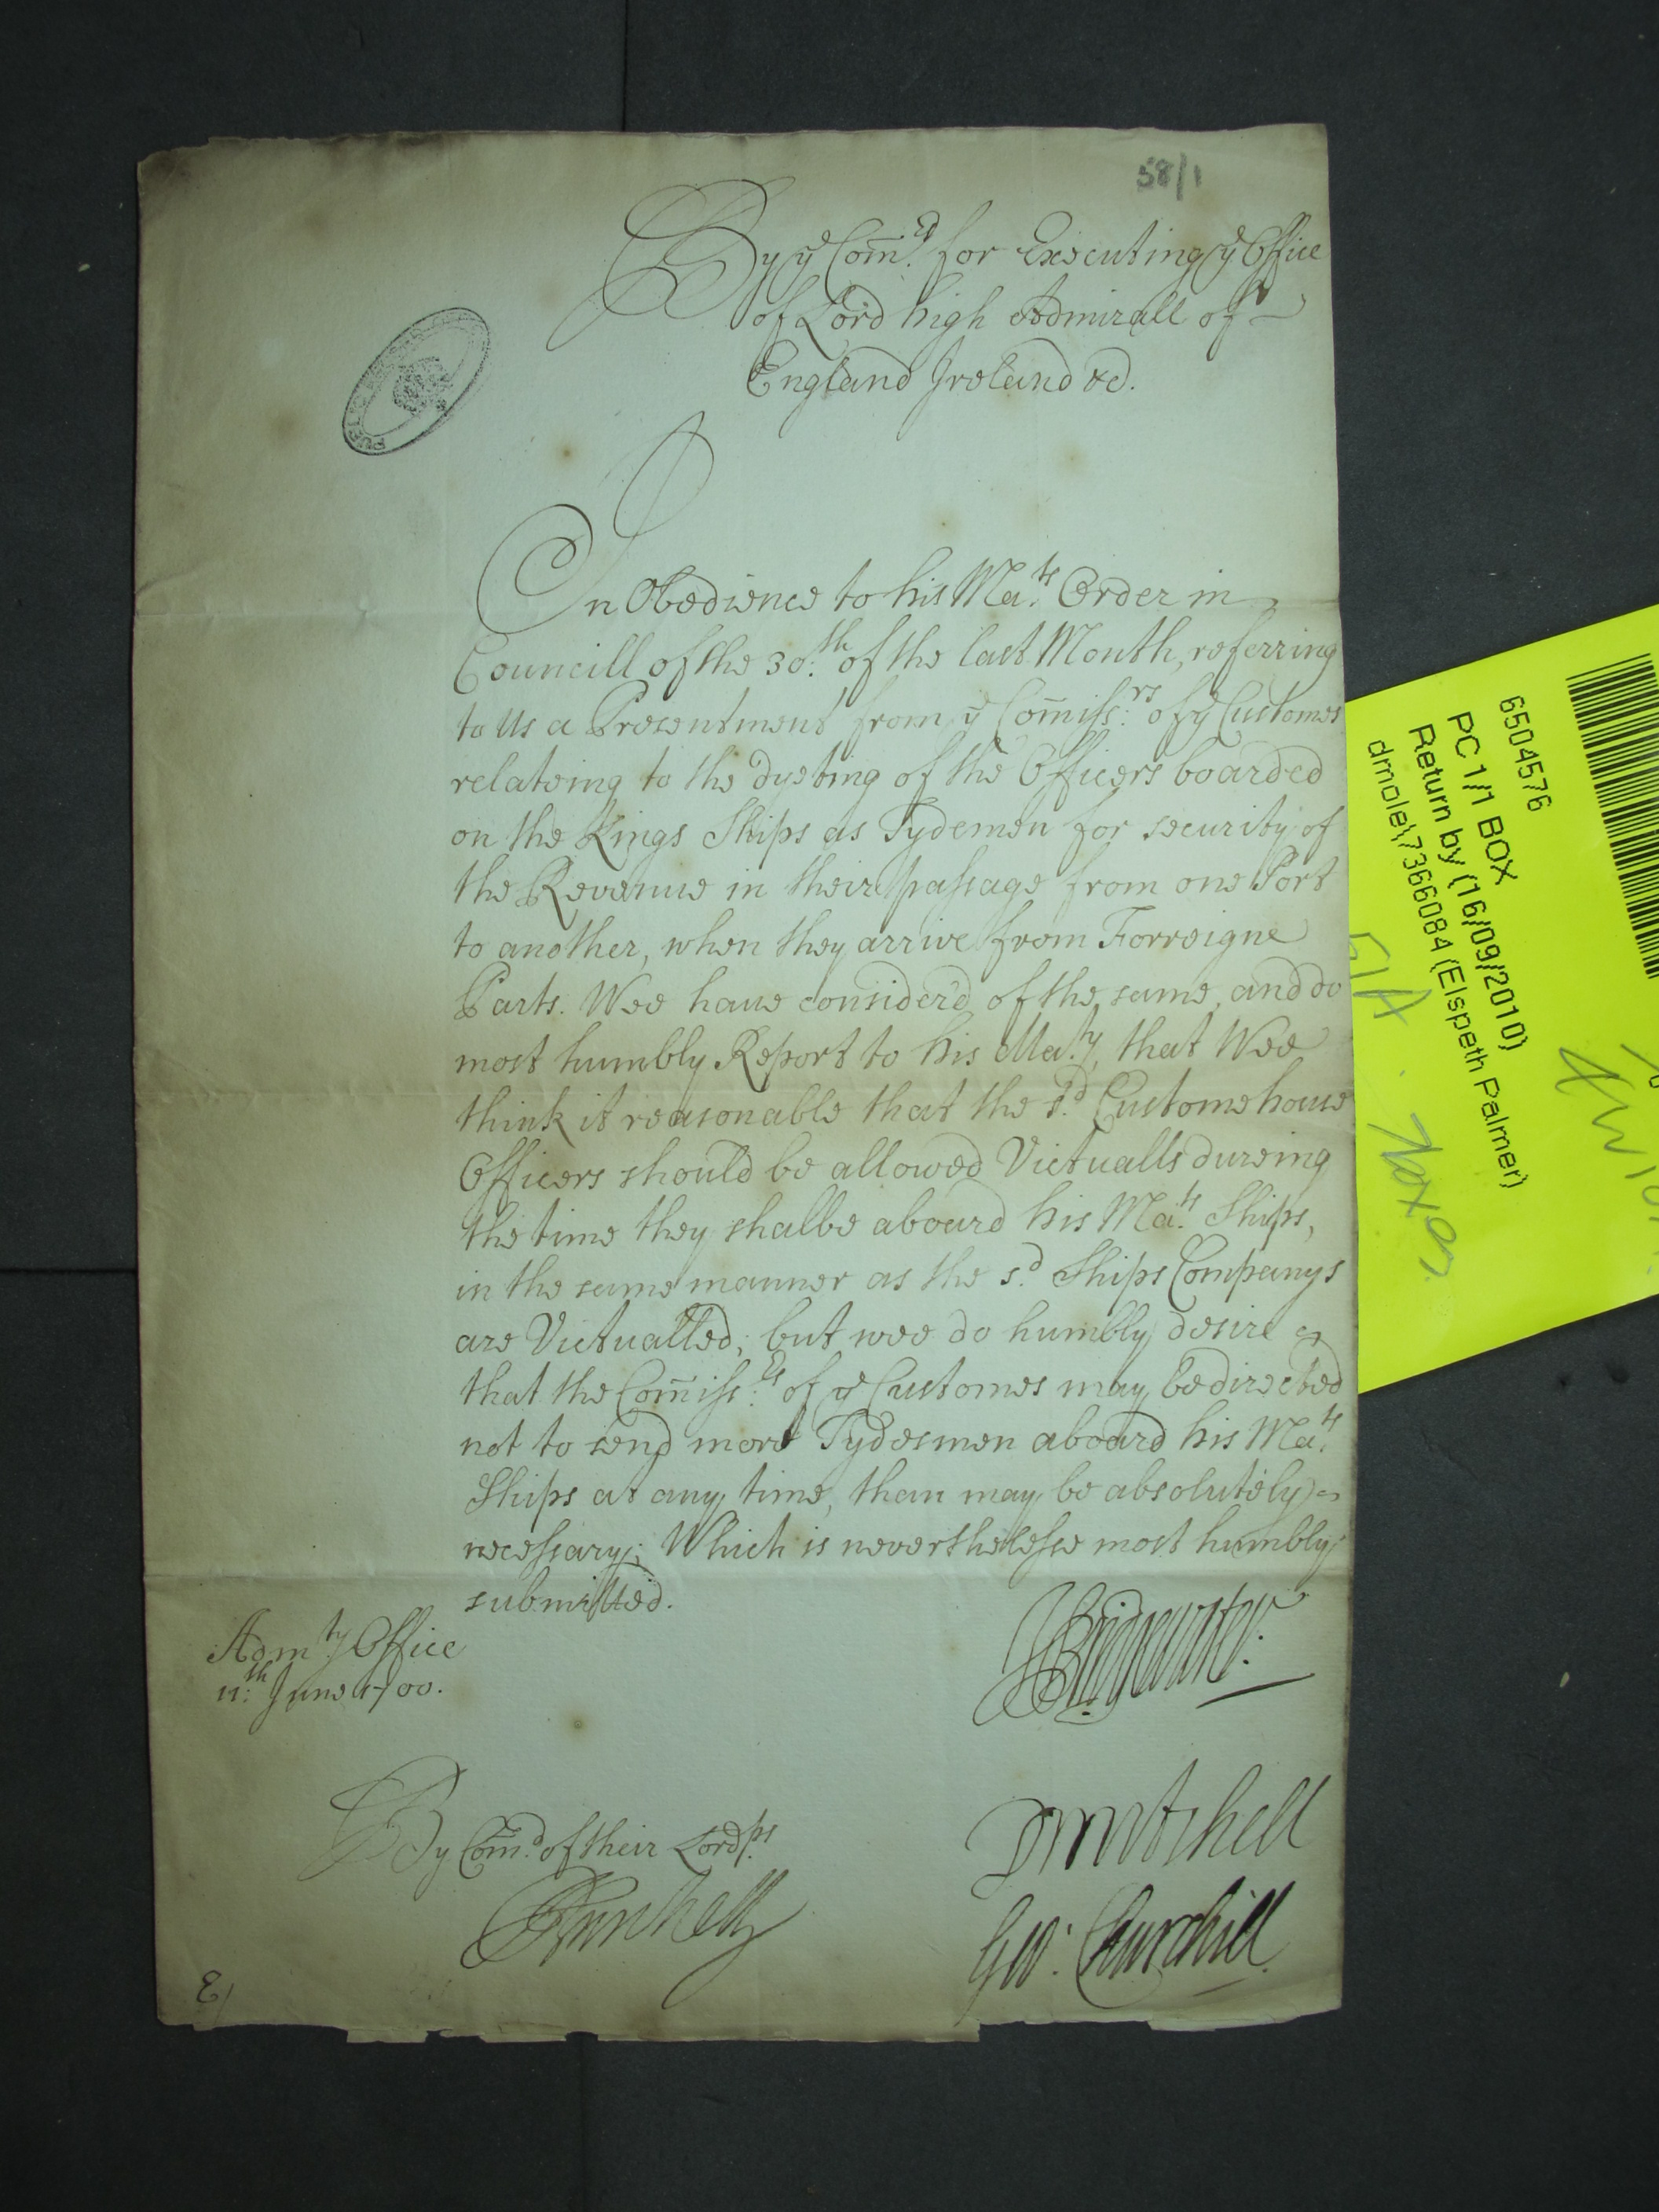 58/1
By yͤ Com̄.rs for Executing yͤ Office
of Lord high Admirall of
England Ireland &c.
In Obedience to his Ma.ts Order in
Councill of the 30.th of the last Month, referring
to Us a Presentment from yͤ Com̄iss.rs of yͤ Customes
relateing to the dyeting of the Officers boarded
on the Kings Ships as Tydemen for security of
the Revenue in their passage from one Port
to another, when they arrive from Forreigne
Parts. Wee have consider'd of the same, and do
most humbly Report to his Ma.ty, that Wee
think it reasonable that the s.d Customehouse
Officers should be allowed Victualls dureing
the time they shalbe aboard his Ma.ts Ships,
in the same manner as the s.d Ships Companys
are Victualled; but wee do humbly desire
that the Com̄iss.rs of yͤ Customes may be directed
not to send more Tydesmen aboard his Ma.ts
Ships at any time, than may be absolutely
necessary; Which is neverthelesse most humbly
submitted.
Adm.ty Office
11.th June 1700.
Bridgewater.
DMitchell
Geo: Churchill.
By Com̄.d of their Lord.ps
6504576
PC 1/1 BOX
Return by (16/09/2010)
dmole\7366084 (Elspeth Palmer)